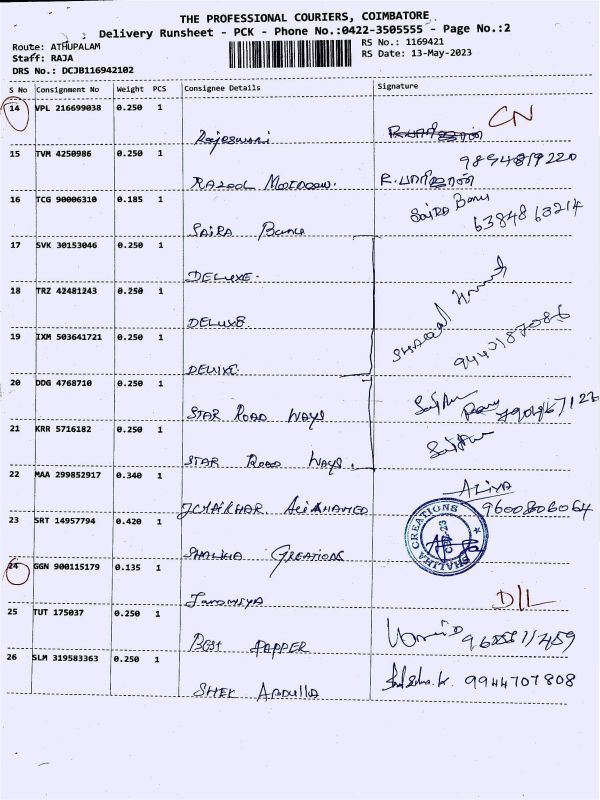 THE PROFESSIONAL COURIERS, COIMBATORE
Delivery Runsheet - PCK - Phone No.:0422-3505555 - Page No.:2
Route: ATHUPALAM
RS No.: 1169421
Staff: RAJA
RS Date: 13-May-2023
DRS No.: DCJB116942102
S No Consignment No Weight PCS Consignee Details Signature
14 VPL 216699038 0.250 1
CN
Rajeswari
15 TVM 4250986 0.250 1
9894819220
16 TCG 90006310 0.185 1
Saira Banu
SAIRA Banu
6384863214
17 SVK 30153046 0.250 1
DELUXE.
18 TRZ 42481243 0.250 1
DELUXE.
19 IXM 503641721 0.250 1
9440187086
DELUXE.
20 DDG 4768710 0.250 1
STAR ROAD WAYS
21 KRR 5716182 0.250 1
STAR ROAD WAYS.
22 MAA 299852917 0.340 1
ALIYA
9600806064
23 SRT 14957794 0.420 1
SHALIHA CREATIONS
SHALIHA CREATIONS
24 GGN 900115179 0.135 1
D/L
25 TUT 175037 0.250 1
BEST PAPPER
26 SLM 319583363 0.250 1
9944707808
SHEK ABDULLA